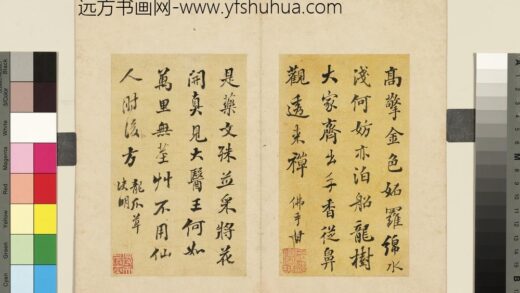 远方书画网-www.yfshuhua.com
高擎金色妬羅綿水
淺何妨亦泊船龍樹
大家齊出手香從鼻
觀透東禪
佛手甘
是藥文殊並采將花
開真見大醫王何如
萬里無艸不用仙
人肘後方
龍爪草
決明
Black
3/Color
White
Magenta
Red
Yellow
Green
Cyan